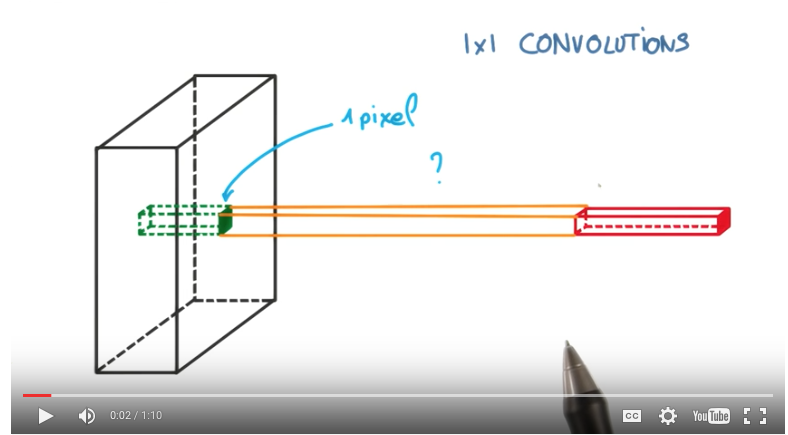 1x1 CONVOLUTIONS
1 pixel
?
0:02 / 1:10
CC
YouTube